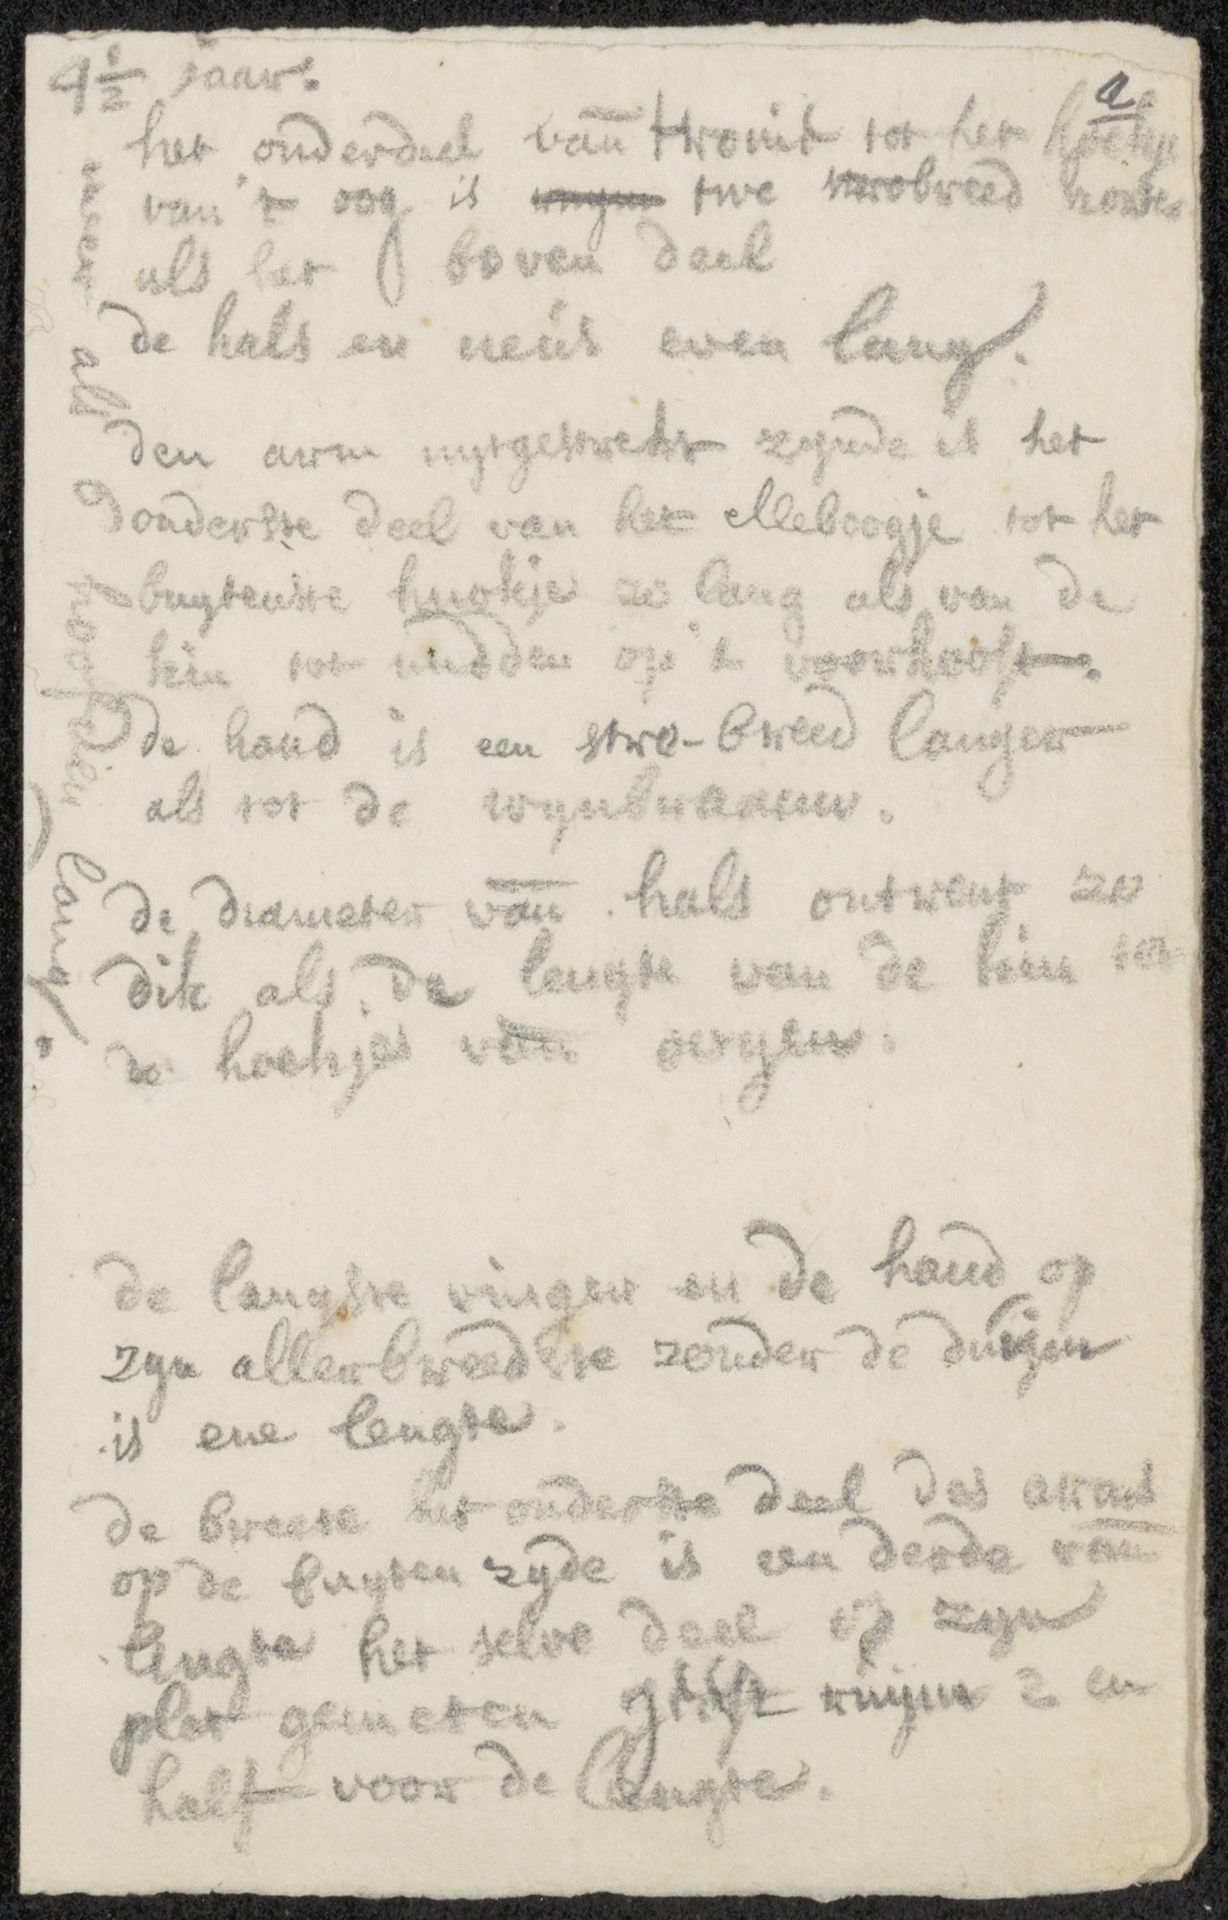 4½ Jaar.
a
het onderdeel van tronit tot het hoekje
van 't oog is twe strobreed
als het boven deel
de hals en neus even lang.
den arm uytgestrekt zynde is het
onderste deel van het elleboogje tot het
buytenste knokje zo lang als van de
kin tot midden op 't voorhooft.
de hand is een stro-breed langer
als tot de wynbraauw.
de diameter van hals ontrent zo
dik als de lengte van de kin tot
hoekjes van oogen.
de langste vinger en de hand op
zyn allerbreedste zonder de duijm
is ene lengte.
de breete het onderste deel des arms
op de buyten zyde is een derde van
lengte het selve deel op zyn
plat gemeten ruijm 2 en
half voor de lengte.
als
lang.